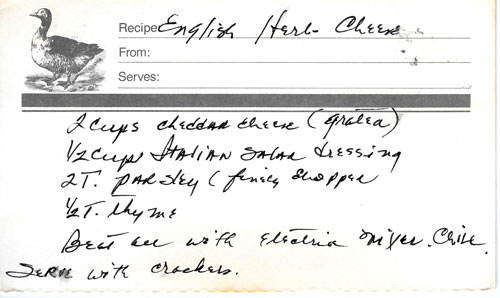 Recipe: English Herb Cheese
From:
Serves:
2 cups cheddar cheese (grated)
1/2 cups Italian salad dressing
2 T. parsley (finely chopped
1/2 T. thyme
Beat all with electric mixer. Chill.
Serve with crackers.